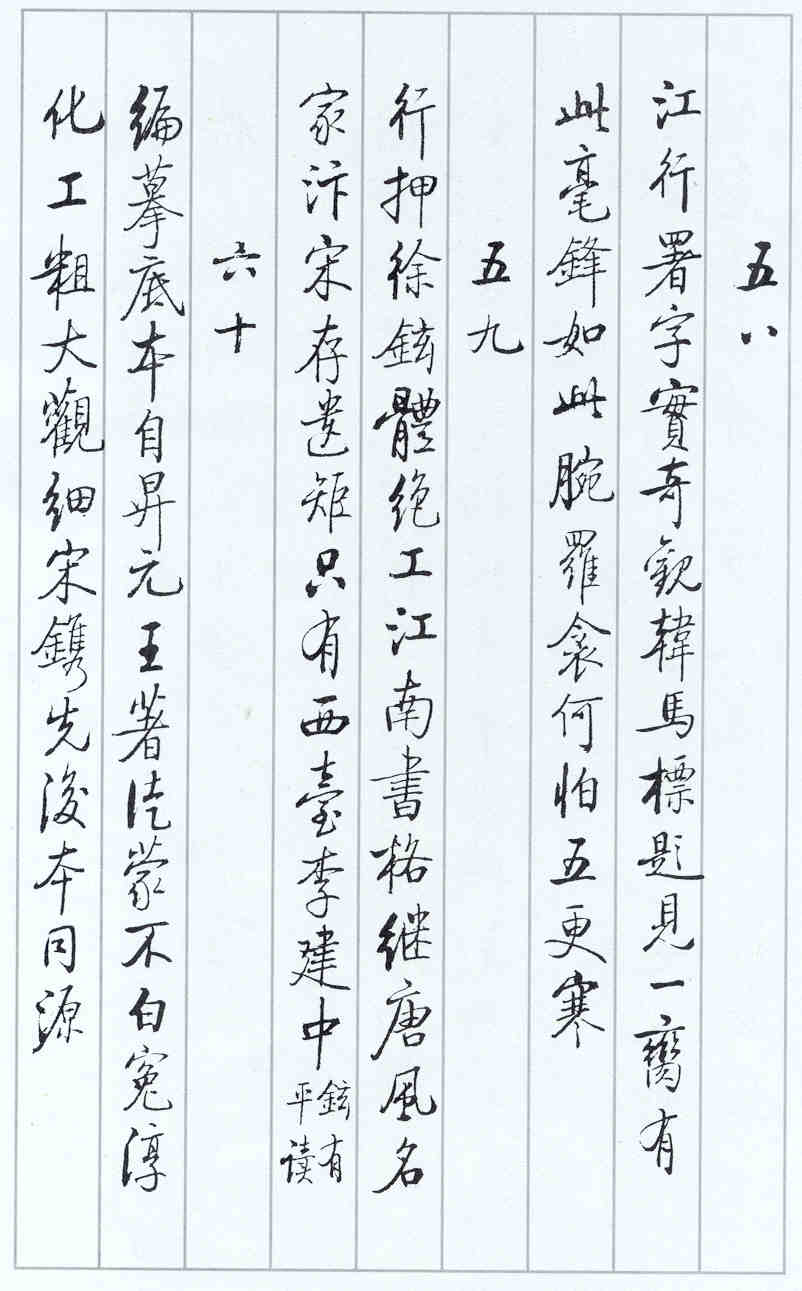 五八
江行署字實奇觀韓馬標題見一臠有
此毫鋒如此腕羅衾何怕五更寒
五九
行押徐鉉體絕工江南書格继唐風名
家汴宋存遺矩只有西臺李建中鉉有平读
六十
编摹底本自昇元王著徒蒙不白冤淳
化工粗大觀细宋鐫先後本同源